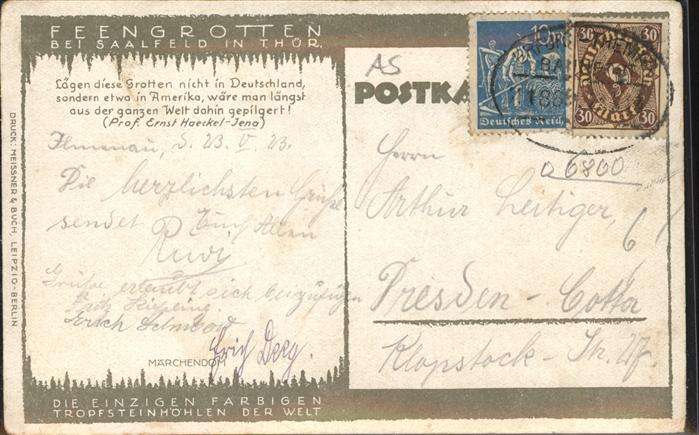 FEENGROTTEN
BEI SAALFELD IN THÜR.
Lägen diese Grotten nicht in Deutschland,
sondern etwa in Amerika, wäre man längst
aus der ganzen Welt dahin gepilgert!
(Prof. Ernst Haeckel-Jena)
Ilmenau, d. 23. V. 23.
Die herzlichsten Grüße
sendet Euch Allen
Grüße erlaubt sich beizufügen
Erich
Erich Deeg.
MÄRCHENDOM
DIE EINZIGEN FARBIGEN
TROPFSTEINHÖHLEN DER WELT
DRUCK: MEISSNER & BUCH, LEIPZIG-BERLIN
AS
POSTKA
10 M
Deutsches Reich
30 30
Deutsche Reichspost
30 Mark 30
a 6800
Herrn
Arthur Leitiger,
Dresden-Cotta
Klopstock-Str.